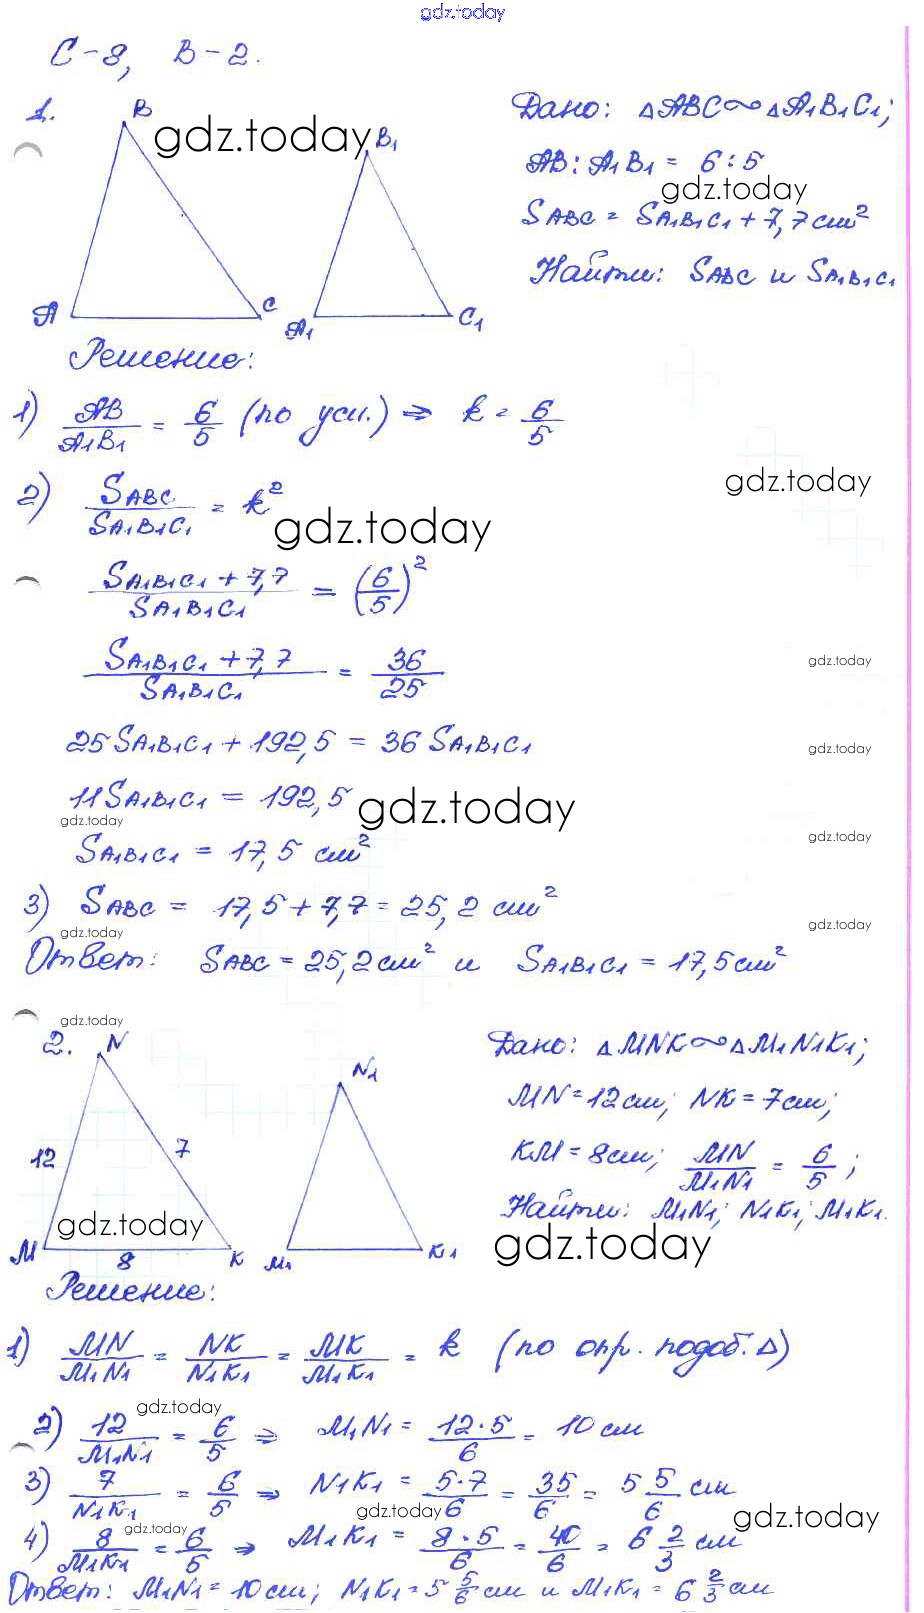 gdz.today
С-8, В-2.
1.
B
gdz.today
B₁
A
C
A₁
C₁
Дано: △ABC∾△A₁B₁C₁;
AB:A₁B₁ = 6:5
gdz.today
SABC = SA₁B₁C₁ + 7,7 см²
Найти: SABC и SA₁B₁C₁
Решение:
1) AB/A₁B₁ = 6/5 (по усл.) ⇒ k = 6/5
2) SABC/SA₁B₁C₁ = k²
gdz.today
gdz.today
(SA₁B₁C₁ + 7,7)/SA₁B₁C₁ = (6/5)²
(SA₁B₁C₁ + 7,7)/SA₁B₁C₁ = 36/25
gdz.today
25SA₁B₁C₁ + 192,5 = 36 SA₁B₁C₁
gdz.today
11SA₁B₁C₁ = 192,5
gdz.today
gdz.today
gdz.today
SA₁B₁C₁ = 17,5 см²
3) SABC = 17,5 + 7,7 = 25,2 см²
gdz.today
gdz.today
Ответ: SABC = 25,2 см² и SA₁B₁C₁ = 17,5 см²
gdz.today
2.
N
N₁
12
7
gdz.today
M
8
K
M₁
K₁
Дано: △MNK∾△M₁N₁K₁;
MN = 12 см; NK = 7 см;
KM = 8 см; MN/M₁N₁ = 6/5;
Найти: M₁N₁; N₁K₁; M₁K₁.
gdz.today
Решение:
1) MN/M₁N₁ = NK/N₁K₁ = MK/M₁K₁ = k (по опр. подоб. △)
gdz.today
2) 12/M₁N₁ = 6/5 ⇒ M₁N₁ = 12·5/6 = 10 см
3) 7/N₁K₁ = 6/5 ⇒ N₁K₁ = 5·7/6 = 35/6 = 5 5/6 см
gdz.today
gdz.today
gdz.today
4) 8/M₁K₁ = 6/5 ⇒ M₁K₁ = 8·5/6 = 40/6 = 6 2/3 см
Ответ: M₁N₁ = 10 см; N₁K₁ = 5 5/6 см и M₁K₁ = 6 2/3 см